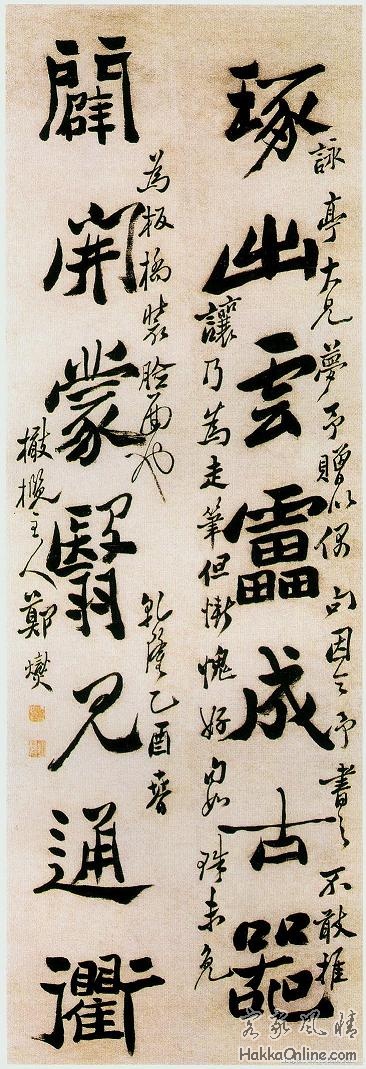 琢出雲靁成古器
詠亭大兄夢予贈以偶句因令予書之不敢推
讓乃為走筆但慚愧好句如珠未免
闢開蒙翳見通衢
為板橋裝臉面也
乾隆乙酉春
橄欖主人鄭燮
客家風情
HakkaOnline.com